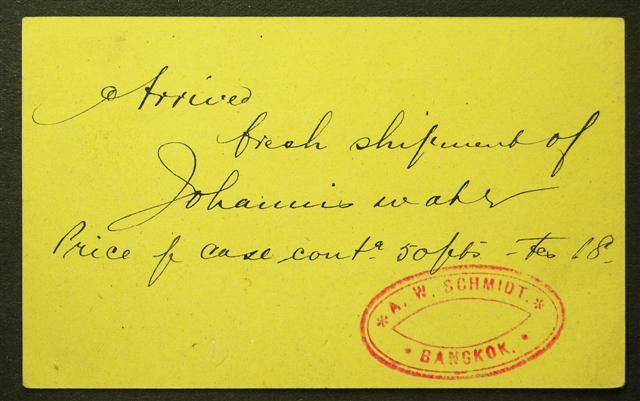 Arrived
fresh shipment of
Johannis water
Price p case cont.g 50 pts - Tcs 18.
* A. W. SCHMIDT. *
* BANGKOK. *